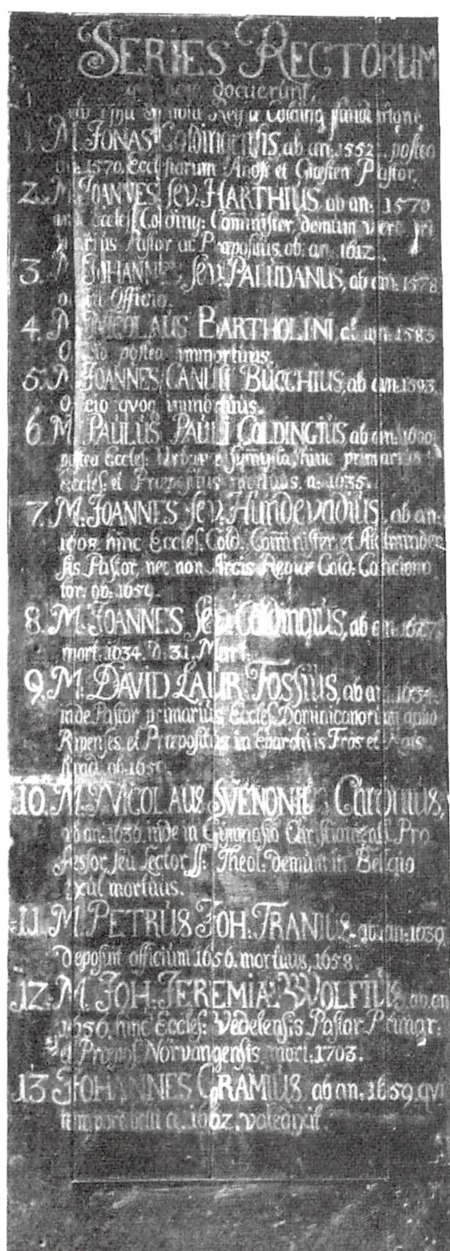 SERIES RECTORUM
docuerunt,
Schola Regia Colding
1. M. JONAS COLDINGENSIS, ab an. 1552. postea
an. 1570. Ecclesiarum et Giasten Pastor.
2. M. JOANNES sev. HARTHIUS, ab an: 1570
Eccles. Colding: Comminister, demum vero pri
marius Pastor ac Præpositus, ob. an. 1612.
3. M. JOHANNES sev. PALUDANUS, ab an: 1578
Officio.
4. M. NICOLAUS BARTHOLINI, ab an: 1583
Officio postea immortuus.
5. M. JOANNES CANUTI BUCCHIUS, ab an: 1593.
Officio qvoq immortuus.
6. M. PAULUS PAULI COLDINGIUS ab an: 1600.
postea Eccles: hinc primarius
Eccles. et Præpositus mortuus. a: 1635.
7. M. JOANNES sev. Hundevadius, ab an:
1608. hinc Eccles. Cold: Comminister, et
sis Pastor, nec non Arcis Regiæ Cold: Conciona
tor. ob: 1659.
8. M. JOANNES sev. COLDINGIUS, ab an: 1627.
mort. 1634. d. 31. Mart.
9. M. DAVID LAUR: FOSSIUS, ab an: 1634.
inde Pastor primarius Eccles. Dominicanorum apud
Ripenses, et Præpositus in Eparchiis Fros et
ob. 165
10. M. NICOLAUS SVENONIS
ab an. 1636. inde in Gymnasio Christianens. Pro
fessor, seu Lector SS: Theol: demum in Belgio
exul mortuus.
11. M. PETRUS JOH: TRANIUS, ab an: 1639.
deposuit officium 1656. mortuus, 1658.
12. M. JOH: JEREMIÆ WOLFIUS, ab an
1656, hinc Eccles: Vedelensis Pastor Primar:
et Præpos. Norvangensis, mort: 1703.
13 JOHANNES GRAMIUS, ab an: 1659, qvi
tempore belli a: 1662. valedixit.